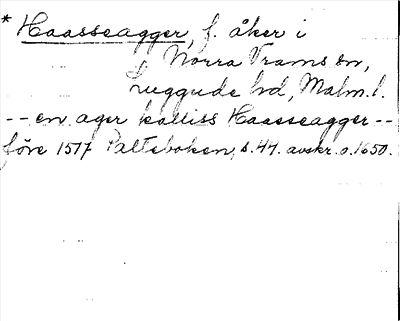 * Haasseagger, f. åker i
Norra Vrams sn,
Luggude hd, Malm. l.
-- en ager kalliss Haasseagger --
före 1517 Palteboken, s. 47. avskr. o. 1650.